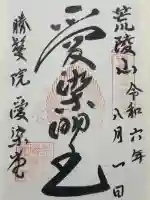 荒陵山
令和六年
八月一日
愛染明王
勝鬘院
愛染堂